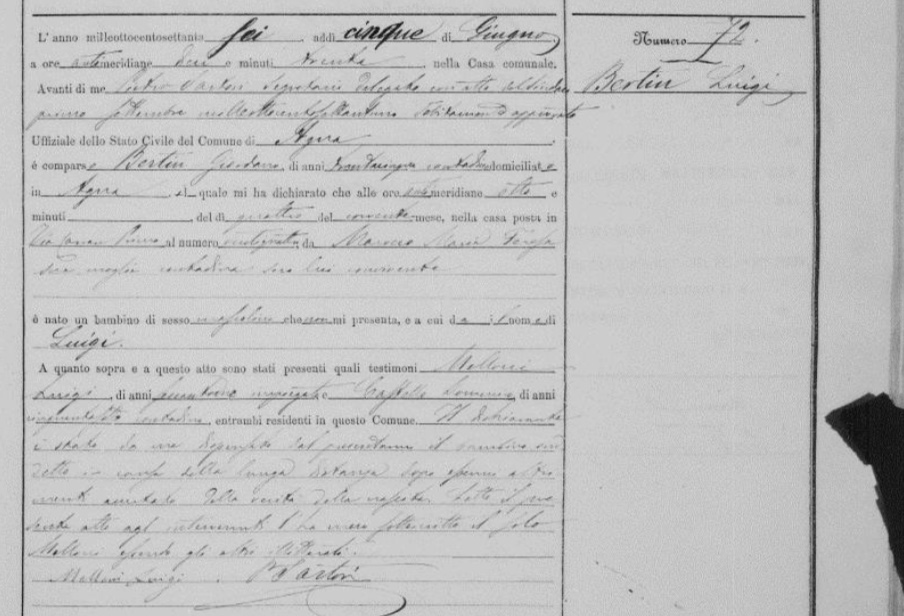 Numero 72.
Bertin Luigi
L'anno milleottocentosettanta sei addì cinque di Giugno,
a ore antimeridiane dieci e minuti trenta, nella Casa comunale.
Avanti di me Pietro Sartori Segretario delegato con atto del Sindaco
primo settembre milleottocentosettantuno debitamente approvato
Uffiziale dello Stato Civile del Comune di Agna
è comparso Bertin Giordano, di anni trentacinque contadino domiciliato
in Agna, il quale mi ha dichiarato che alle ore antimeridiane otto e
minuti, del dì quattro del corrente mese, nella casa posta in
Via al numero da Maria Teresa
sua moglie contadina seco lui convivente
è nato un bambino di sesso mascolino che non mi presenta, e a cui dà il nome di
Luigi.
A quanto sopra e a questo atto sono stati presenti quali testimoni Melloni
Luigi, di anni impiegato e Castello Domenico, di anni
cinquantotto contadino, entrambi residenti in questo Comune. Il dichiarante
è stato da me dispensato dal presentarmi il bambino sud
detto in causa della lunga distanza dopo essermi altri
menti accertato della verità della nascita. Letto il pre
sente atto agl'intervenuti l'ha meco sottoscritto il solo
Melloni essendo gli altri illetterati.
Melloni Luigi. P Sartori